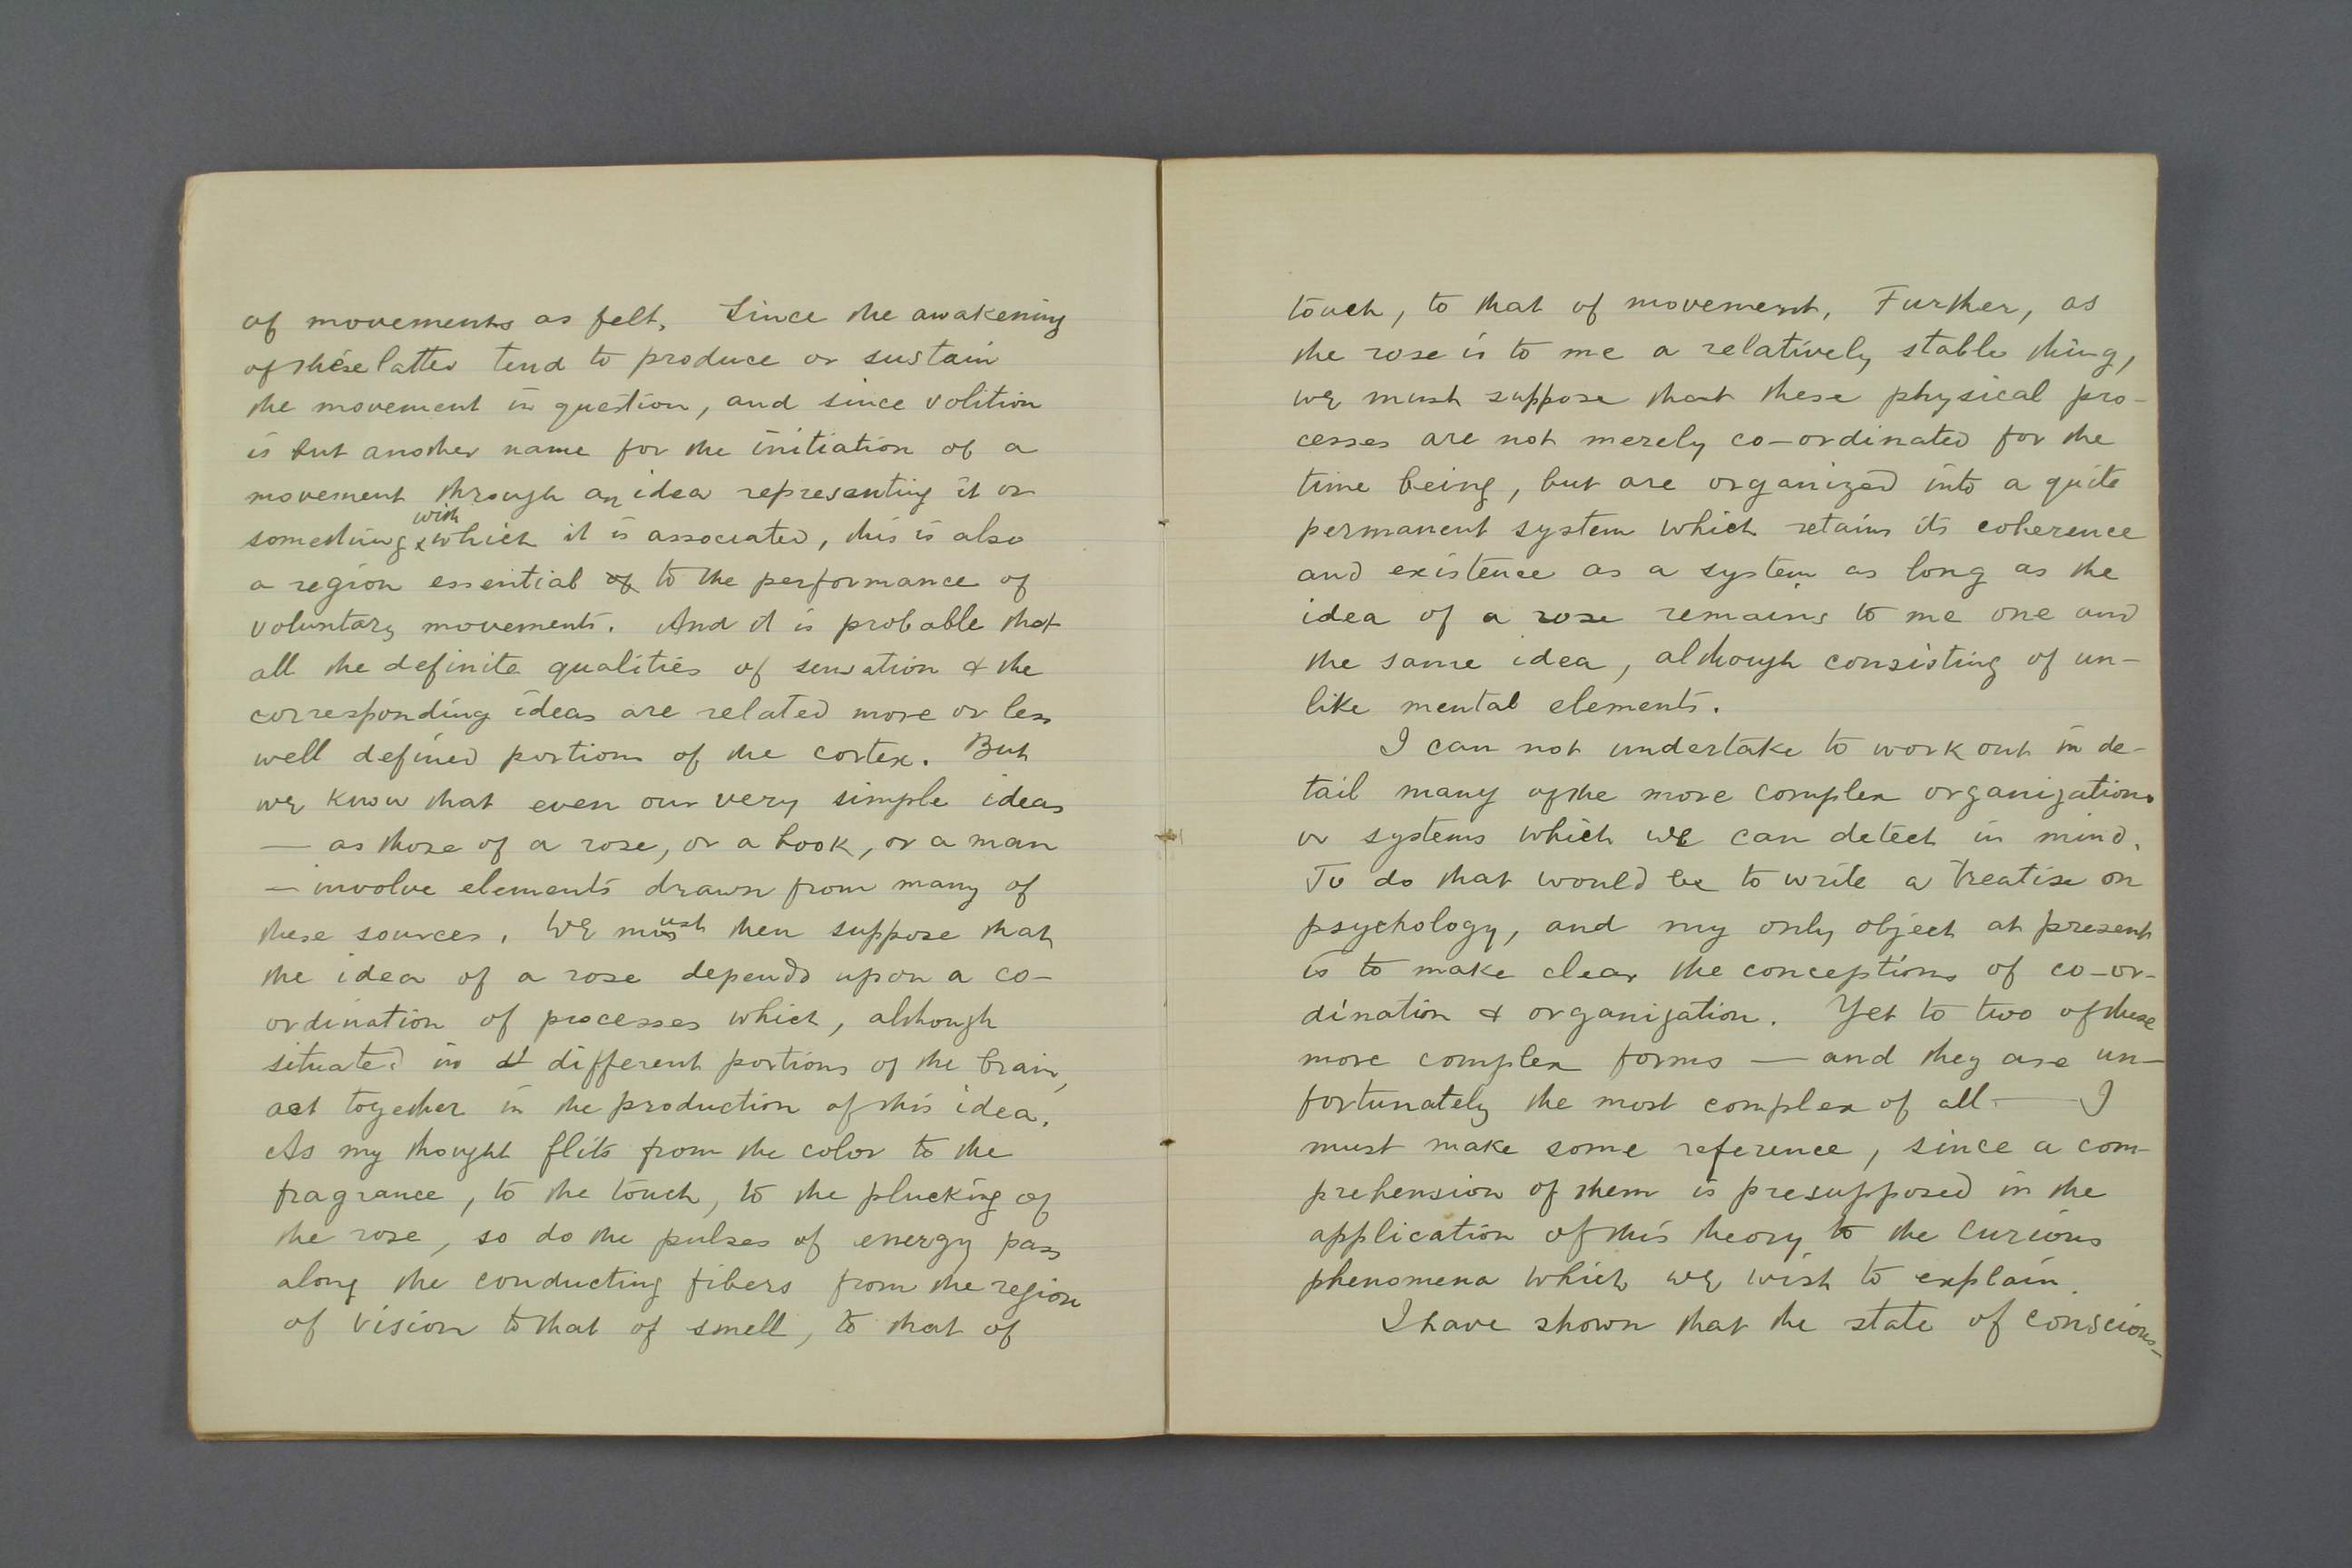 of movements as felt. Since the awakening
of these latter tend to produce or sustain
the movement in question, and since volition
is but another name for the initiation of a
movement through an idea representing it or
something with which it is associated, this is also
a region essential of to the performance of
voluntary movements. And it is probable that
all the definite qualities of sensation & the
corresponding ideas are related more or less
well defined portions of the cortex. But
we know that even our very simple ideas
— as those of a rose, or a book, or a man
— involve elements drawn from many of
these sources. We must then suppose that
the idea of a rose depends upon a co-
ordination of processes which, although
situated in different portions of the brain,
act together in the production of this idea.
As my thought flits from the color to the
fragrance, to the touch, to the plucking of
the rose, so do the pulses of energy pass
along the conducting fibers from the region
of vision to that of smell, to that of
touch, to that of movement. Further, as
the rose is to me a relatively stable thing,
we must suppose that these physical pro-
cesses are not merely co-ordinated for the
time being, but are organized into a quite
permanent system which retains its coherence
and existence as a system as long as the
idea of a rose remains to me one and
the same idea, although consisting of un-
like mental elements.
I can not undertake to work out in de-
tail many of the more complex organizations
or systems which we can detect in mind.
To do that would be to write a treatise on
psychology, and my only object at present
is to make clear the conceptions of co-or-
dination & organization. Yet to two of these
more complex forms — and they are un-
fortunately the most complex of all — I
must make some reference, since a com-
prehension of them is presupposed in the
application of this theory to the curious
phenomena which we wish to explain.
I have shown that the state of conscious-